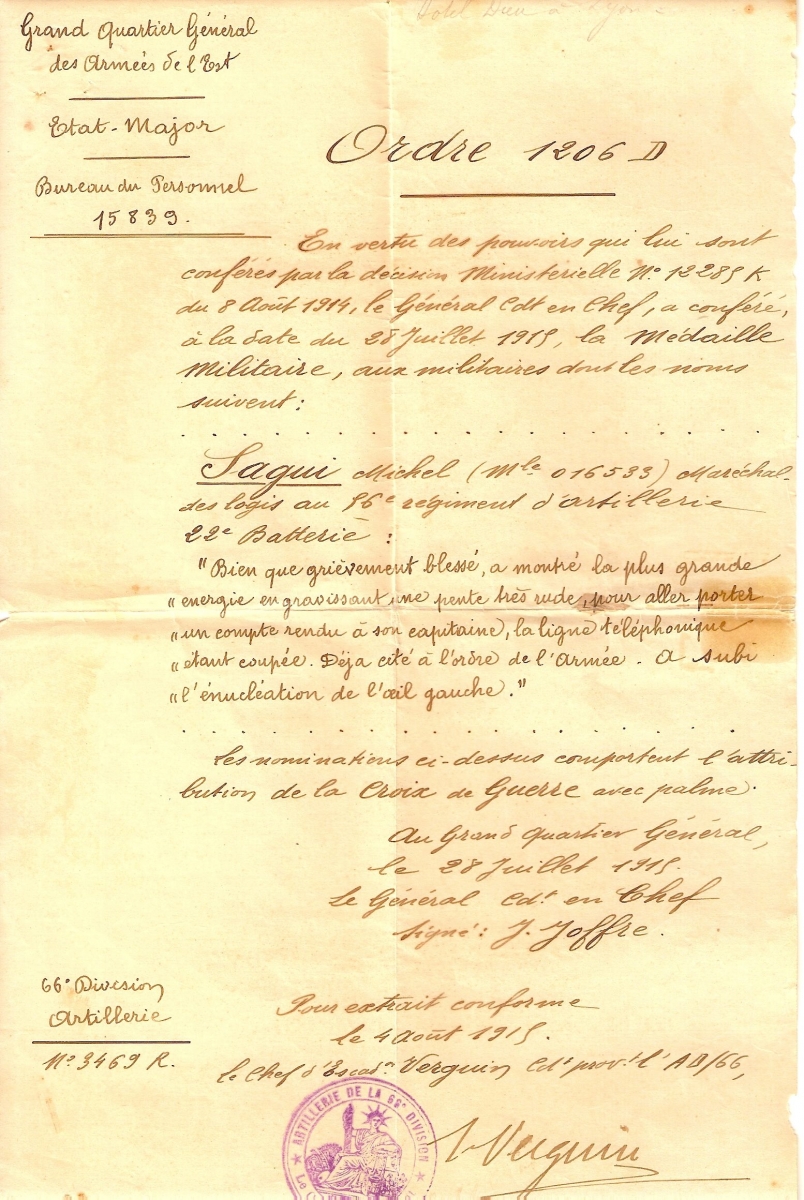 Hotel Dieu à Lyon
Grand Quartier Général
des Armées de l'Est
Etat-Major
Bureau du Personnel
15839.
Ordre 1206 D
En vertu des pouvoirs qui lui sont
conférés par la décision Ministérielle No. 12285 K
du 8 Août 1914, le Général Cdt en Chef, a conféré,
à la date du 28 Juillet 1915, la Médaille
Militaire, aux militaires dont les noms
suivent:
Sagui Michel (Mle 016533) Maréchal-
des logis au 56e régiment d'artillerie
22e Batterie :
"Bien que grièvement blessé, a montré la plus grande
"energie en gravissant une pente très rude, pour aller porter
"un compte rendu à son capitaine, la ligne téléphonique
"étant coupée. Déja cité à l'ordre de l'Armée. a subi
"l'énucléation de l'œil gauche."
Les nominations ci-dessus comportent l'attri-
bution de la Croix de Guerre avec palme.
Au Grand Quartier Général,
le 28 Juillet 1915.
Le Général Cdt en Chef
Signé: J. Joffre.
66e Division
Artillerie
No 3469 R.
Pour extrait conforme
le 4 Août 1915.
le Chef d'Escadn Verguin Cdt provt l'AD/66,
ARTILLERIE DE LA 66e DIVISION
Verguin